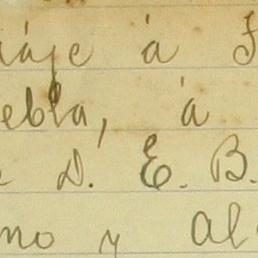 iáje á
ebla, á
D. E. B.
no y Al